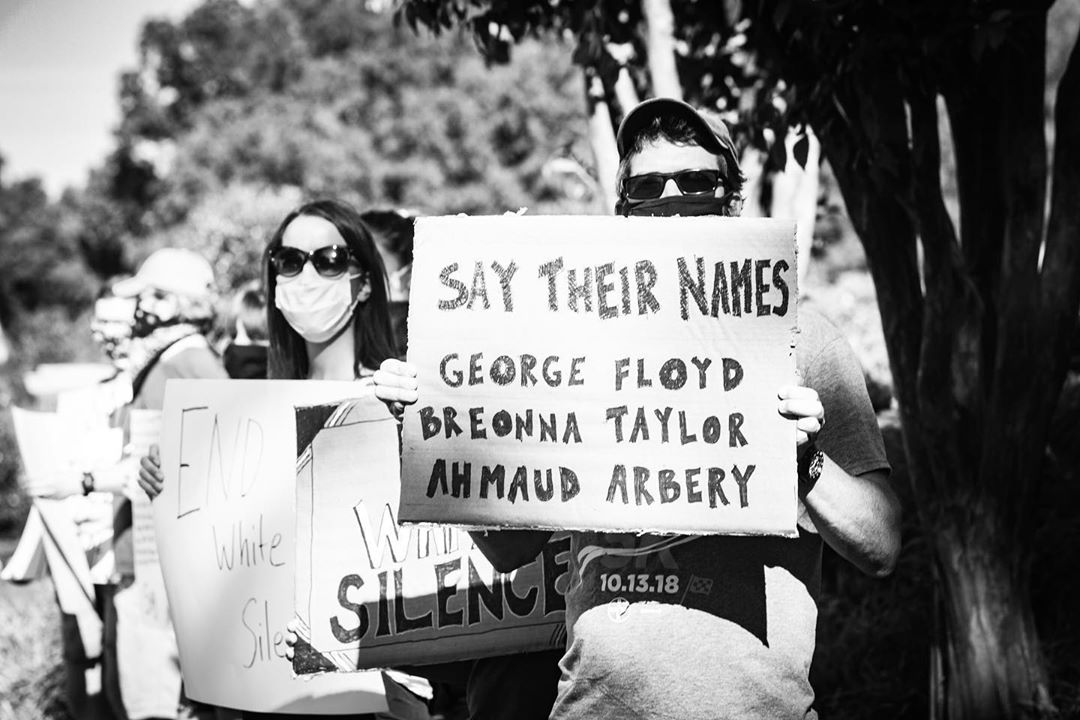 SAY THEIR NAMES
GEORGE FLOYD
BREONNA TAYLOR
AHMAUD ARBERY
END
White
SILENCE
10.13.18